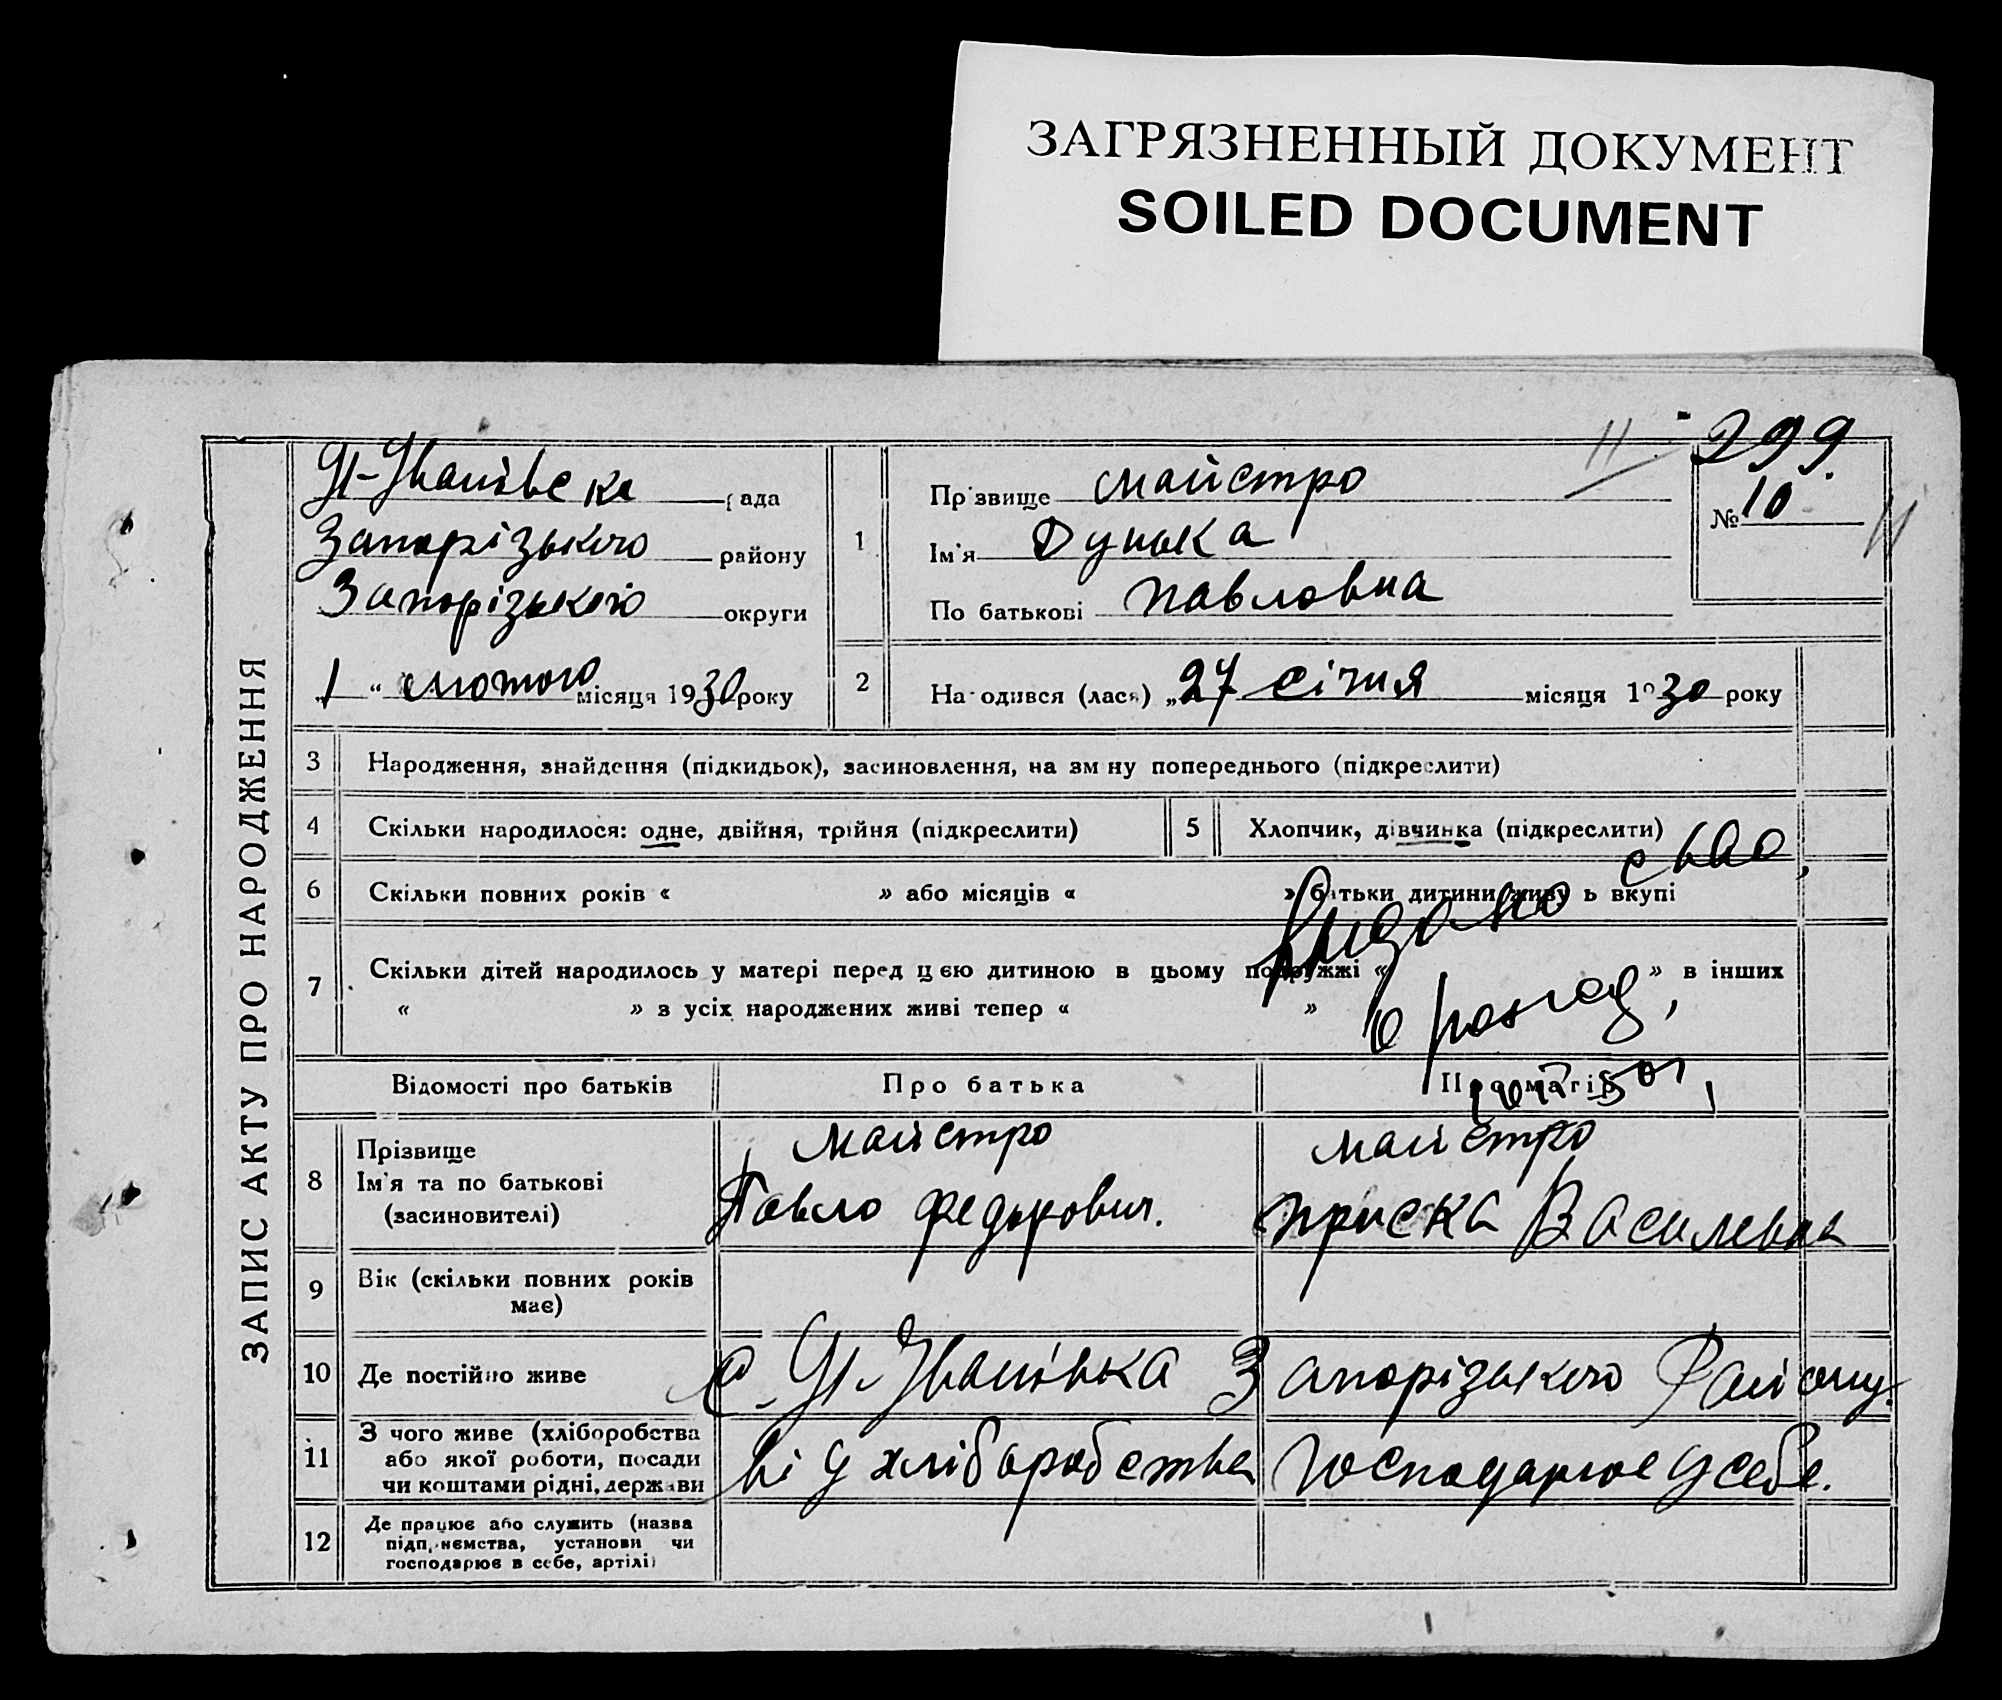 ЗАГРЯЗНЕННЫЙ ДОКУМЕНТ
SOILED DOCUMENT
299
11
ЗАПИС АКТУ ПРО НАРОДЖЕННЯ
рада
Запорізького району
Запорізького округи
1 " лютого місяця 1930 року
1
Прізвище майстро
Ім'я Дунька
По батькові павловна
№ 10
11
2
Народився (лася) „27 січня місяця 1930 року
3 Народження, знайдення (підкидьок), засиновлення, на зміну попереднього (підкреслити)
4 Скільки народилося: одне, двійня, трійня (підкреслити)
5 Хлопчик, дівчинка (підкреслити)
6 Скільки повних років « » або місяців « » батьки дитини живуть вкупі
Видано
7 Скільки дітей народилось у матері перед цією дитиною в цьому подружжі « » в інших
« » з усіх народжених живі тепер « »
Відомості про батьків
Про батька
Про матір
8 Прізвище
Ім'я та по батькові
(засиновителі)
майстро
Павло Федорович.
майстро
приска Василевна
9 Вік (скільки повних років
має)
10 Де постійно живе
Запорізького Району.
11 З чого живе (хліборобства
або якої роботи, посади
чи коштами рідні, держави
від хліборобства господарює у себе.
12 Де працює або служить (назва
підприємства, установи чи
господарює в себе, артілі)